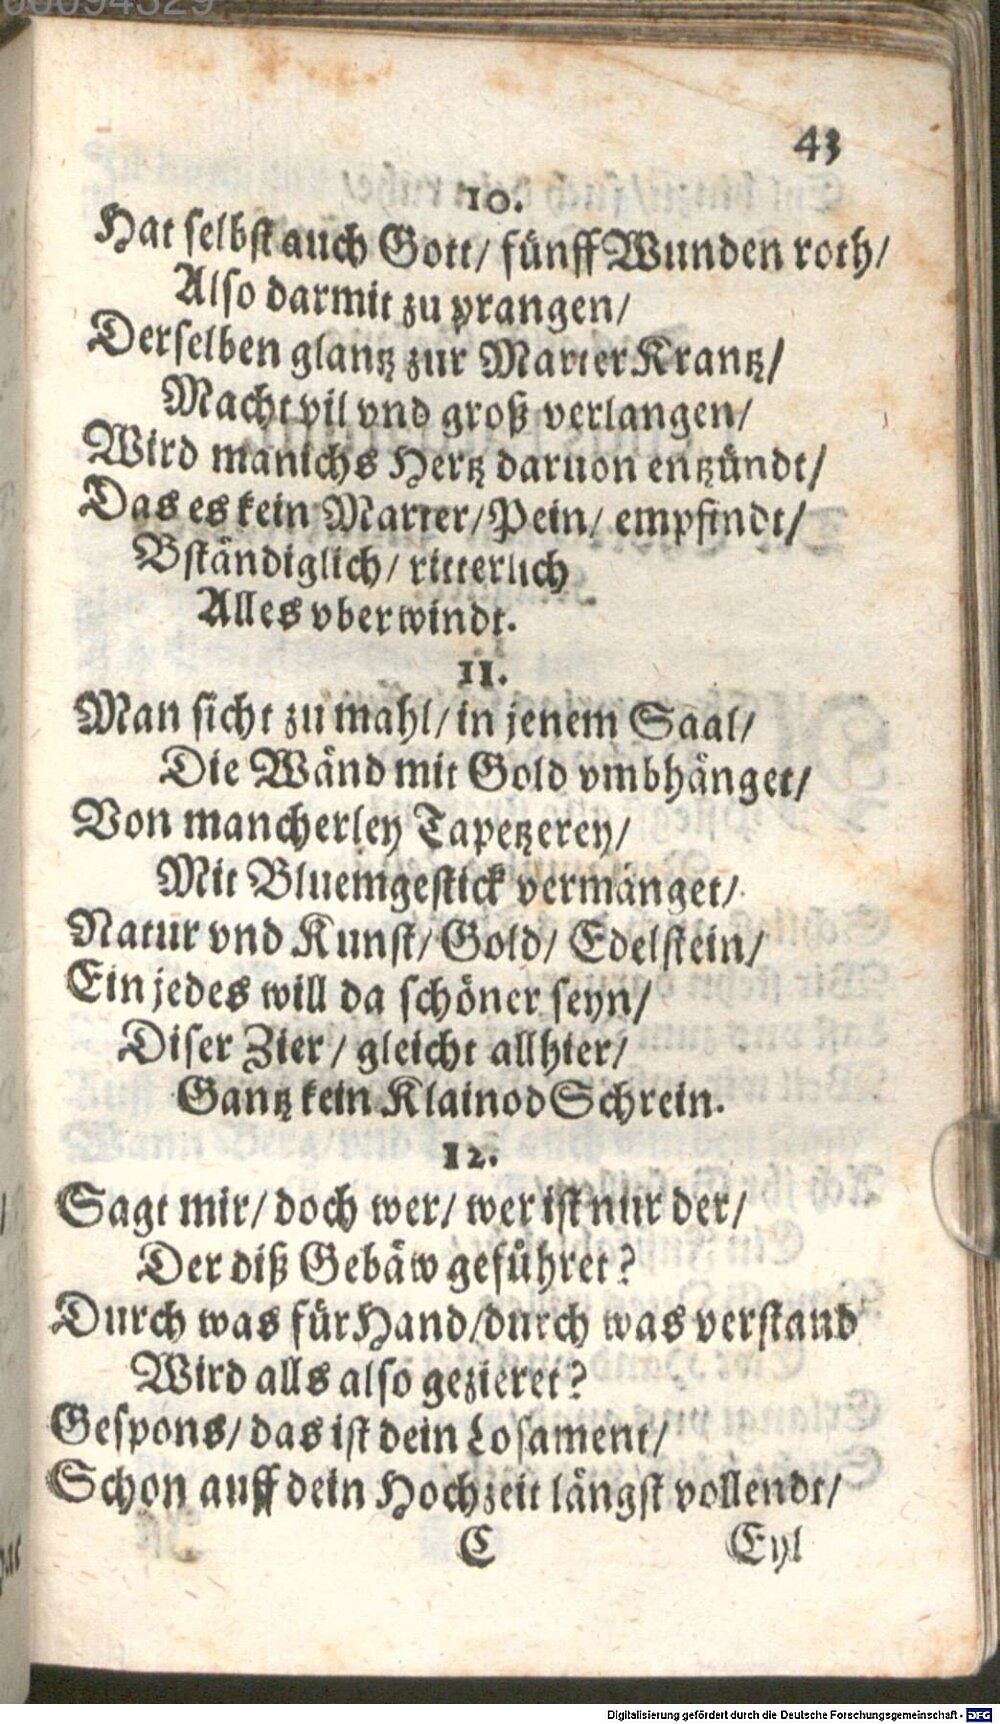 00094329
43
10.
Hat selbst auch Gott/ fünff Wunden roth/
Also darmit zu prangen/
Derselben glantz zur Marter Krantz/
Macht vil vnd groß verlangen/
Wird manichs Hertz daruon entzündt/
Das es kein Marter/ Pein/ empfindt/
Bständiglich/ ritterlich
Alles vberwindt.
11.
Man sicht zu mahl/ in jenem Saal/
Die Wänd mit Gold vmbhänget/
Von mancherley Tapetzerey/
Mit Bluemgestick vermänget/
Natur vnd Kunst/ Gold/ Edelstein/
Ein jedes will da schöner seyn/
Diser Zier/ gleicht allhier/
Gantz kein Klainod Schrein.
12.
Sagt mir/ doch wer/ wer ist nur der/
Der diß Gebäw geführet?
Durch was für Hand/ durch was verstand
Wird alls also gezieret?
Gespons/ das ist dein Losament/
Schon auff dein Hochzeit längst vollendt/
C Eyl
Digitalisierung gefördert durch die Deutsche Forschungsgemeinschaft - DFG